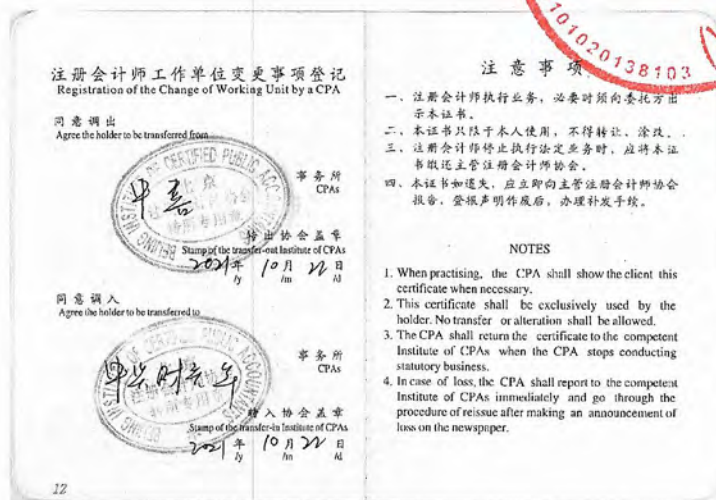 注册会计师工作单位变更事项登记
Registration of the Change of Working Unit by a CPA
同意调出
Agree the holder to be transferred from
中喜
事务所
CPAs
转出协会盖章
Stamp of the transfer-out Institute of CPAs
2021年 10月 22日
/y /m /d
同意调入
Agree the holder to be transferred to
事务所
CPAs
转入协会盖章
Stamp of the transfer-in Institute of CPAs
2021年 10月 22日
/y /m /d
12
101020138103
注意事项
一、注册会计师执行业务，必要时须向委托方出
示本证书。
二、本证书只限于本人使用，不得转让、涂改。
三、注册会计师停止执行法定业务时，应将本证
书缴还主管注册会计师协会。
四、本证书如遗失，应立即向主管注册会计师协会
报告，登报声明作废后，办理补发手续。
NOTES
1. When practising, the CPA shall show the client this
certificate when necessary.
2. This certificate shall be exclusively used by the
holder. No transfer or alteration shall be allowed.
3. The CPA shall return the certificate to the competent
Institute of CPAs when the CPA stops conducting
statutory business.
4. In case of loss, the CPA shall report to the competent
Institute of CPAs immediately and go through the
procedure of reissue after making an announcement of
loss on the newspaper.